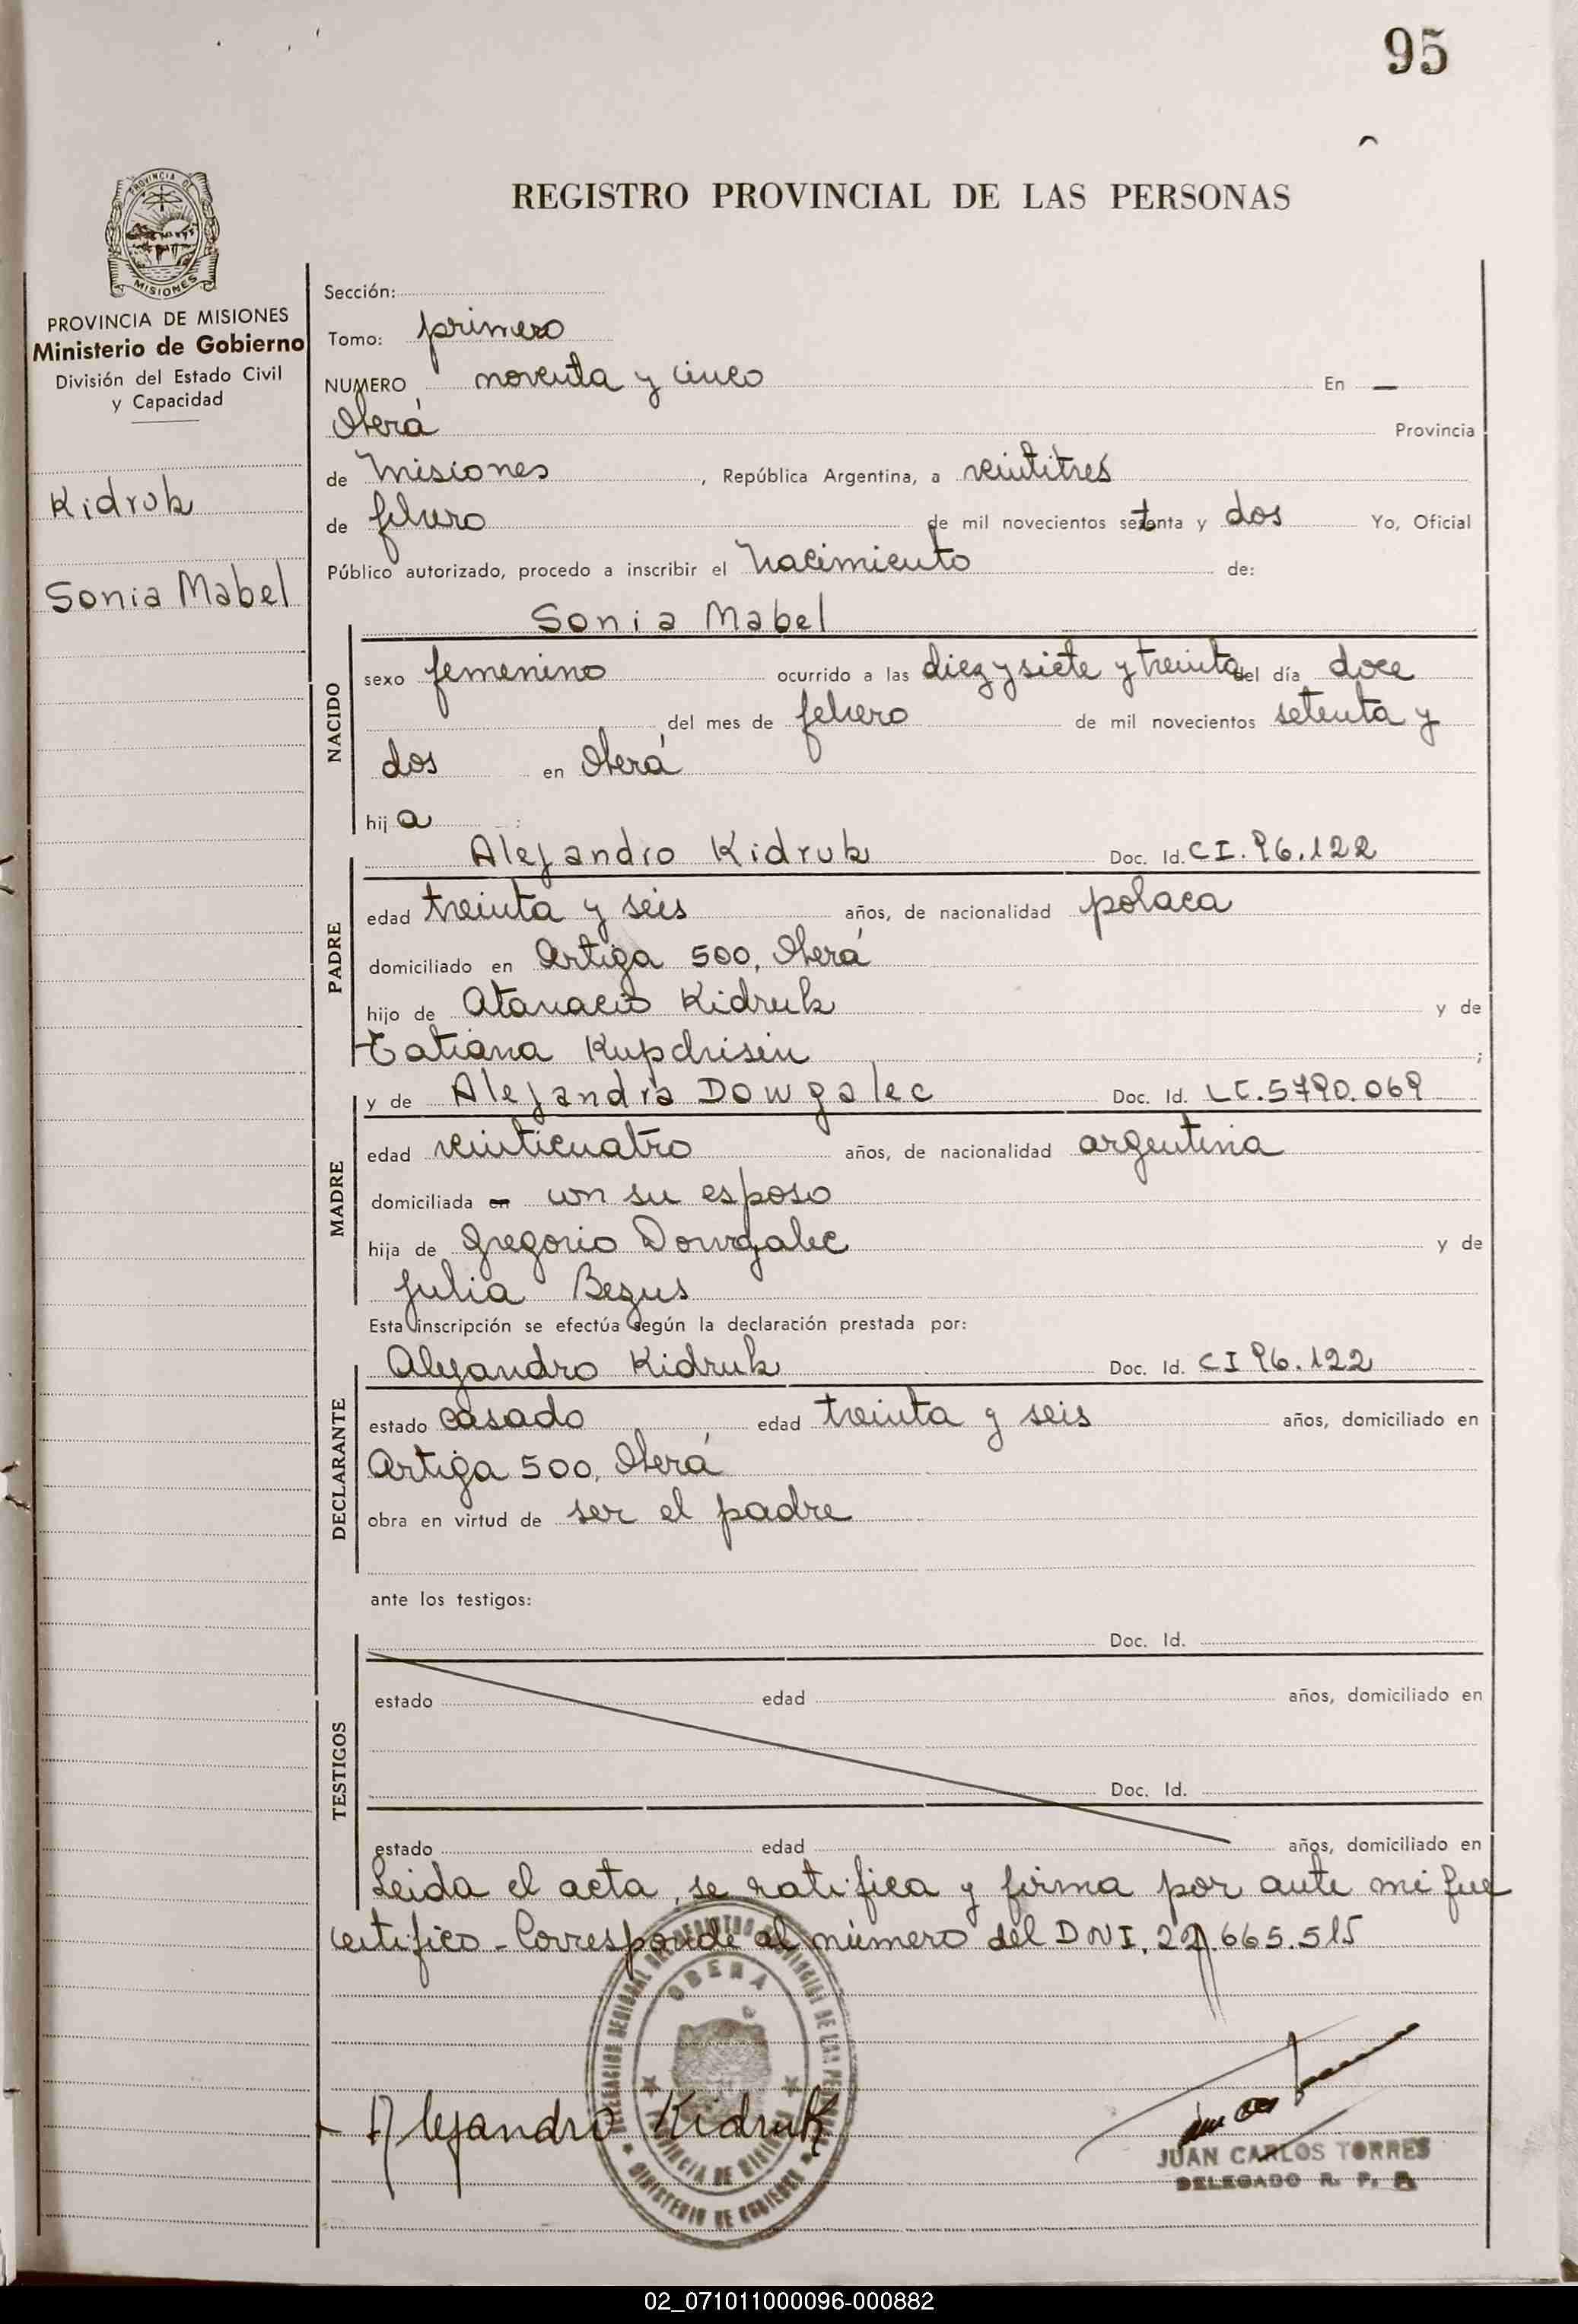 95
REGISTRO PROVINCIAL DE LAS PERSONAS
PROVINCIA DE
MISIONES
PROVINCIA DE MISIONES
Ministerio de Gobierno
División del Estado Civil
y Capacidad
Kidruk
Sonia Mabel
Sección:
Tomo: primero
NUMERO noventa y cinco En —
Oberá Provincia
de Misiones, República Argentina, a veintitres
de febrero de mil novecientos setenta y dos Yo, Oficial
Público autorizado, procedo a inscribir el nacimiento de:
Sonia Mabel
NACIDO
sexo femenino ocurrido a las diez y siete y treinta del día doce
del mes de febrero de mil novecientos setenta y
dos en Oberá
hij a
PADRE
Alejandro Kidruk Doc. Id. CI. 96.122
edad treinta y seis años, de nacionalidad polaca
domiciliado en Artiga 500, Oberá
hijo de Atanacio Kidruk y de
Tatiana Kupchisin;
MADRE
y de Alejandra Dowgalec Doc. Id. LC. 5790.069
edad veinticuatro años, de nacionalidad argentina
domiciliada en con su esposo
hija de Gregorio Dowgalec y de
Julia Bezus
Esta inscripción se efectúa según la declaración prestada por:
DECLARANTE
Alejandro Kidruk Doc. Id. CI 96.122
estado casado edad treinta y seis años, domiciliado en
Artiga 500, Oberá
obra en virtud de ser el padre
ante los testigos:
TESTIGOS
Doc. Id.
estado edad años, domiciliado en
Doc. Id.
estado edad años, domiciliado en
Leida el acta, se ratifica y firma por ante mi que
certifico - Corresponde al número del DNI. 22.665.515
OBERA
PROVINCIA DE MISIONES
MINISTERIO DE GOBIERNO
Alejandro Kidruk
JUAN CARLOS TORRES
DELEGADO R. P. P.
02_071011000096-000882